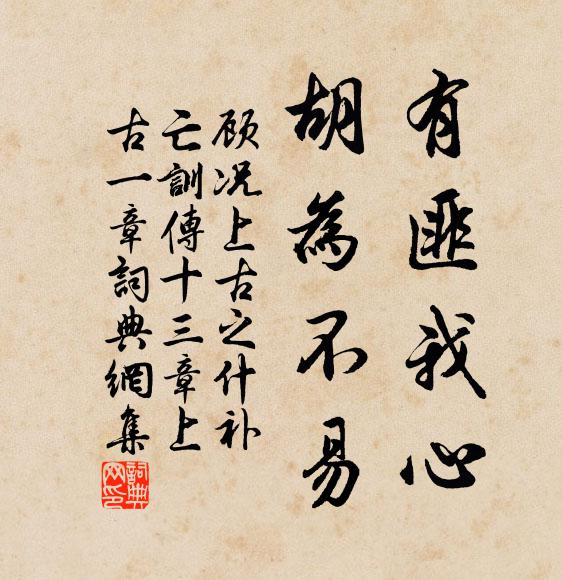 有匪我心
胡為不易
顾况上古之什补
亡訓傳十三章上
古一章詞典網集
詞典
网印